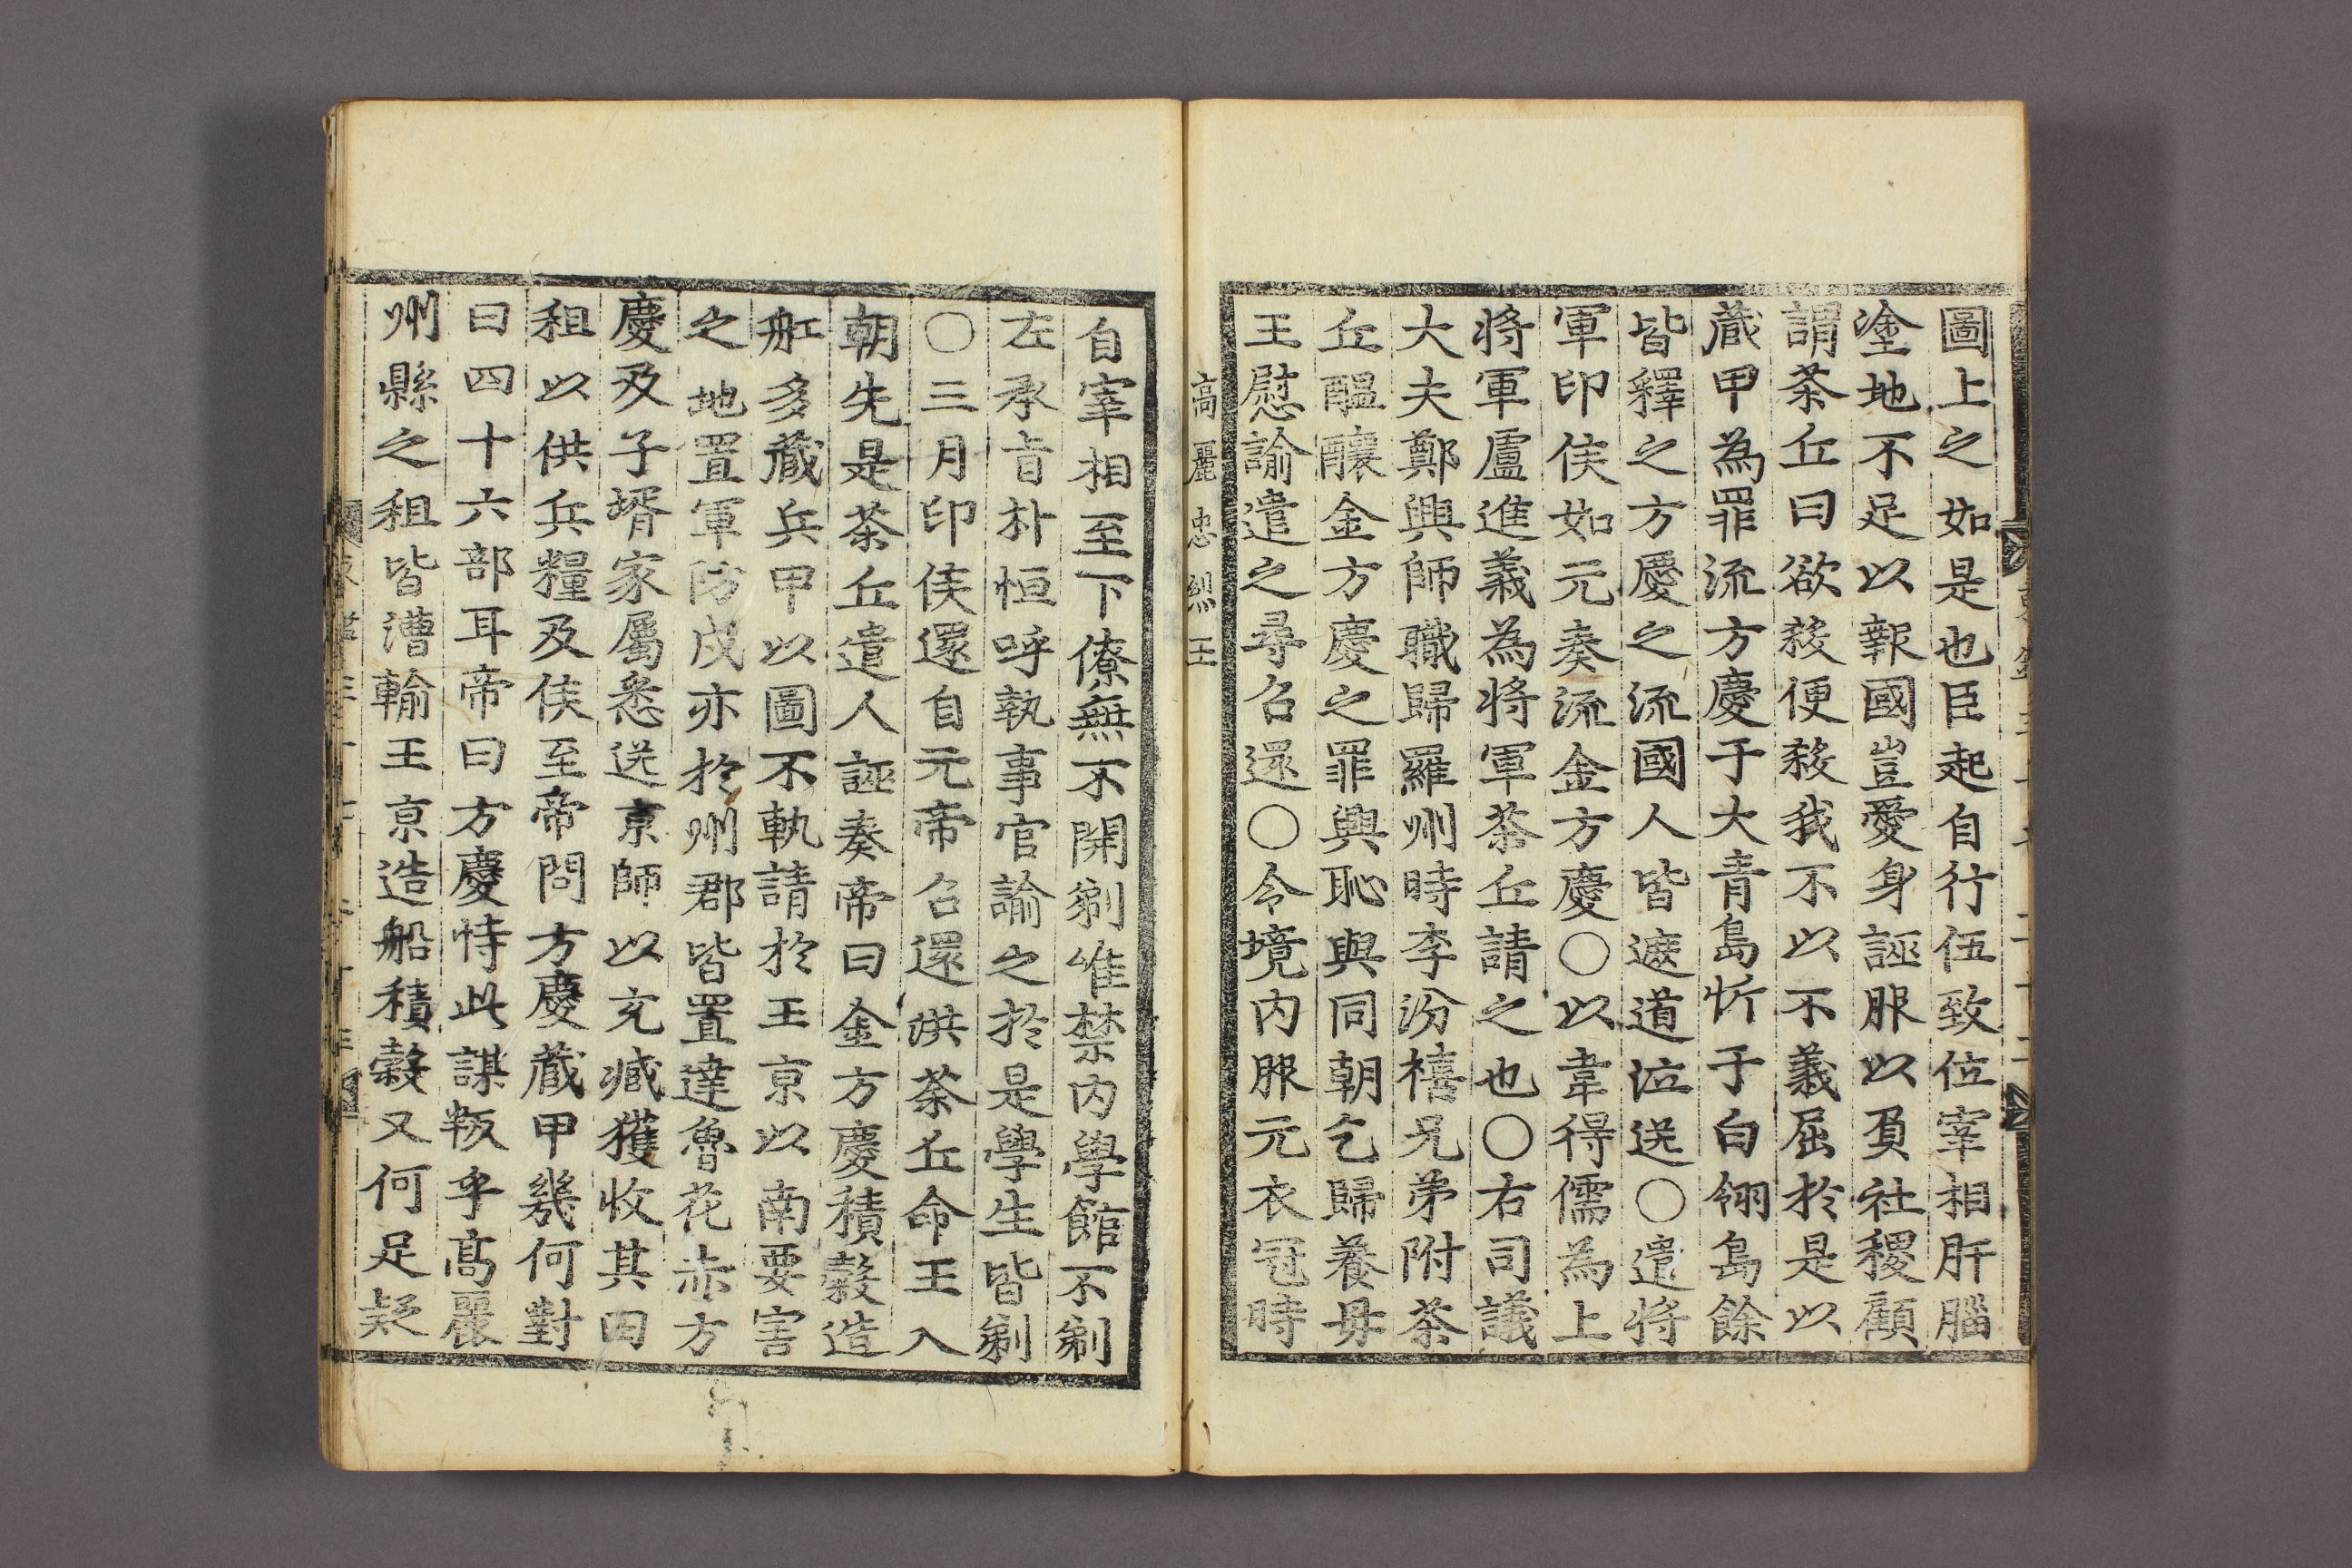 圖上之如是也臣起自行伍致位宰相肝腦
塗地不足以報國豈愛身誣服以負社稷顧
謂茶丘曰欲殺便殺我不以不義屈於是以
蔵甲為罪流方慶于大青島忻于白翎島餘
皆釋之方慶之流國人皆遮道泣送〇遣将
軍印侯如元奏流金方慶〇以韋得儒為上
将軍盧進義為将軍茶丘請之也〇右司議
大夫鄭興師職歸羅州時李汾禧兄弟附茶
丘醞釀金方慶之罪興恥與同朝乞歸養母
王慰諭遣之尋召還〇令境内服元衣冠時
高麗忠烈王
自宰相至下僚無不開剃唯禁内學館不剃
左承旨朴恒呼執事官諭之於是學生皆剃
〇三月印侯還自元帝召還洪茶丘命王入
朝先是茶丘遣人誣奏帝曰金方慶積糓造
舡多蔵兵甲以圖不軌請於王京以南要害
之地置軍防戍亦於州郡皆置達魯花赤方
慶及子壻家屬悉送京師以充臧獲收其田
租以供兵糧及侯至帝問方慶蔵甲幾何對
曰四十六部耳帝曰方慶恃此謀叛乎髙麗
州縣之租皆漕輸王京造船積糓又何足疑